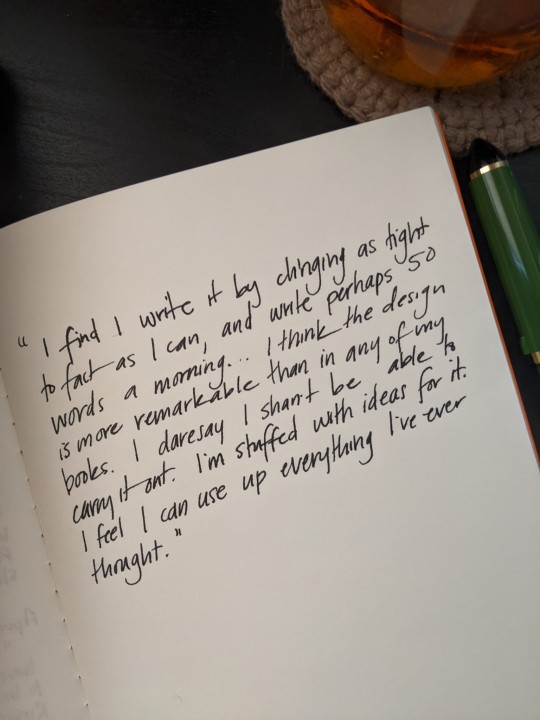 " I find I write it by clinging as tight
to fact as I can, and write perhaps 50
words a morning... I think the design
is more remarkable than in any of my
books. I daresay I shan't be able to
carry it out. I'm stuffed with ideas for it.
I feel I can use up everything I've ever
thought."